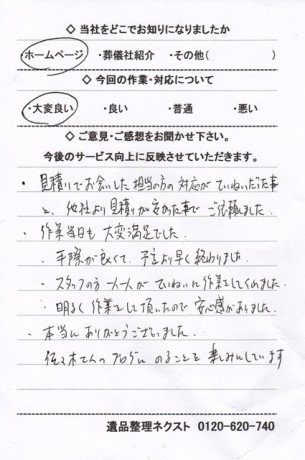 ◇ 当社をどこでお知りになりましたか
・ホームページ ・葬儀社紹介 ・その他( )
◇ 今回の作業・対応について
・大変良い ・良い ・普通 ・悪い
◇ ご意見・ご感想をお聞かせ下さい。
今後のサービス向上に反映させていただきます。
・見積りでお会いした担当の方の対応がていねいだった事
と、他社より見積りが安かった事で ご依頼しました。
・作業当日も大変満足でした。
・手際が良くて、予定より早く終わりました。
・スタッフの方一人一人がていねいに作業してくれました。
・明るく作業して頂いたので安心感がありました。
・本当にありがとうございました。
佐々木さんのブログにのることを楽しみにしています
遺品整理ネクスト 0120-620-740